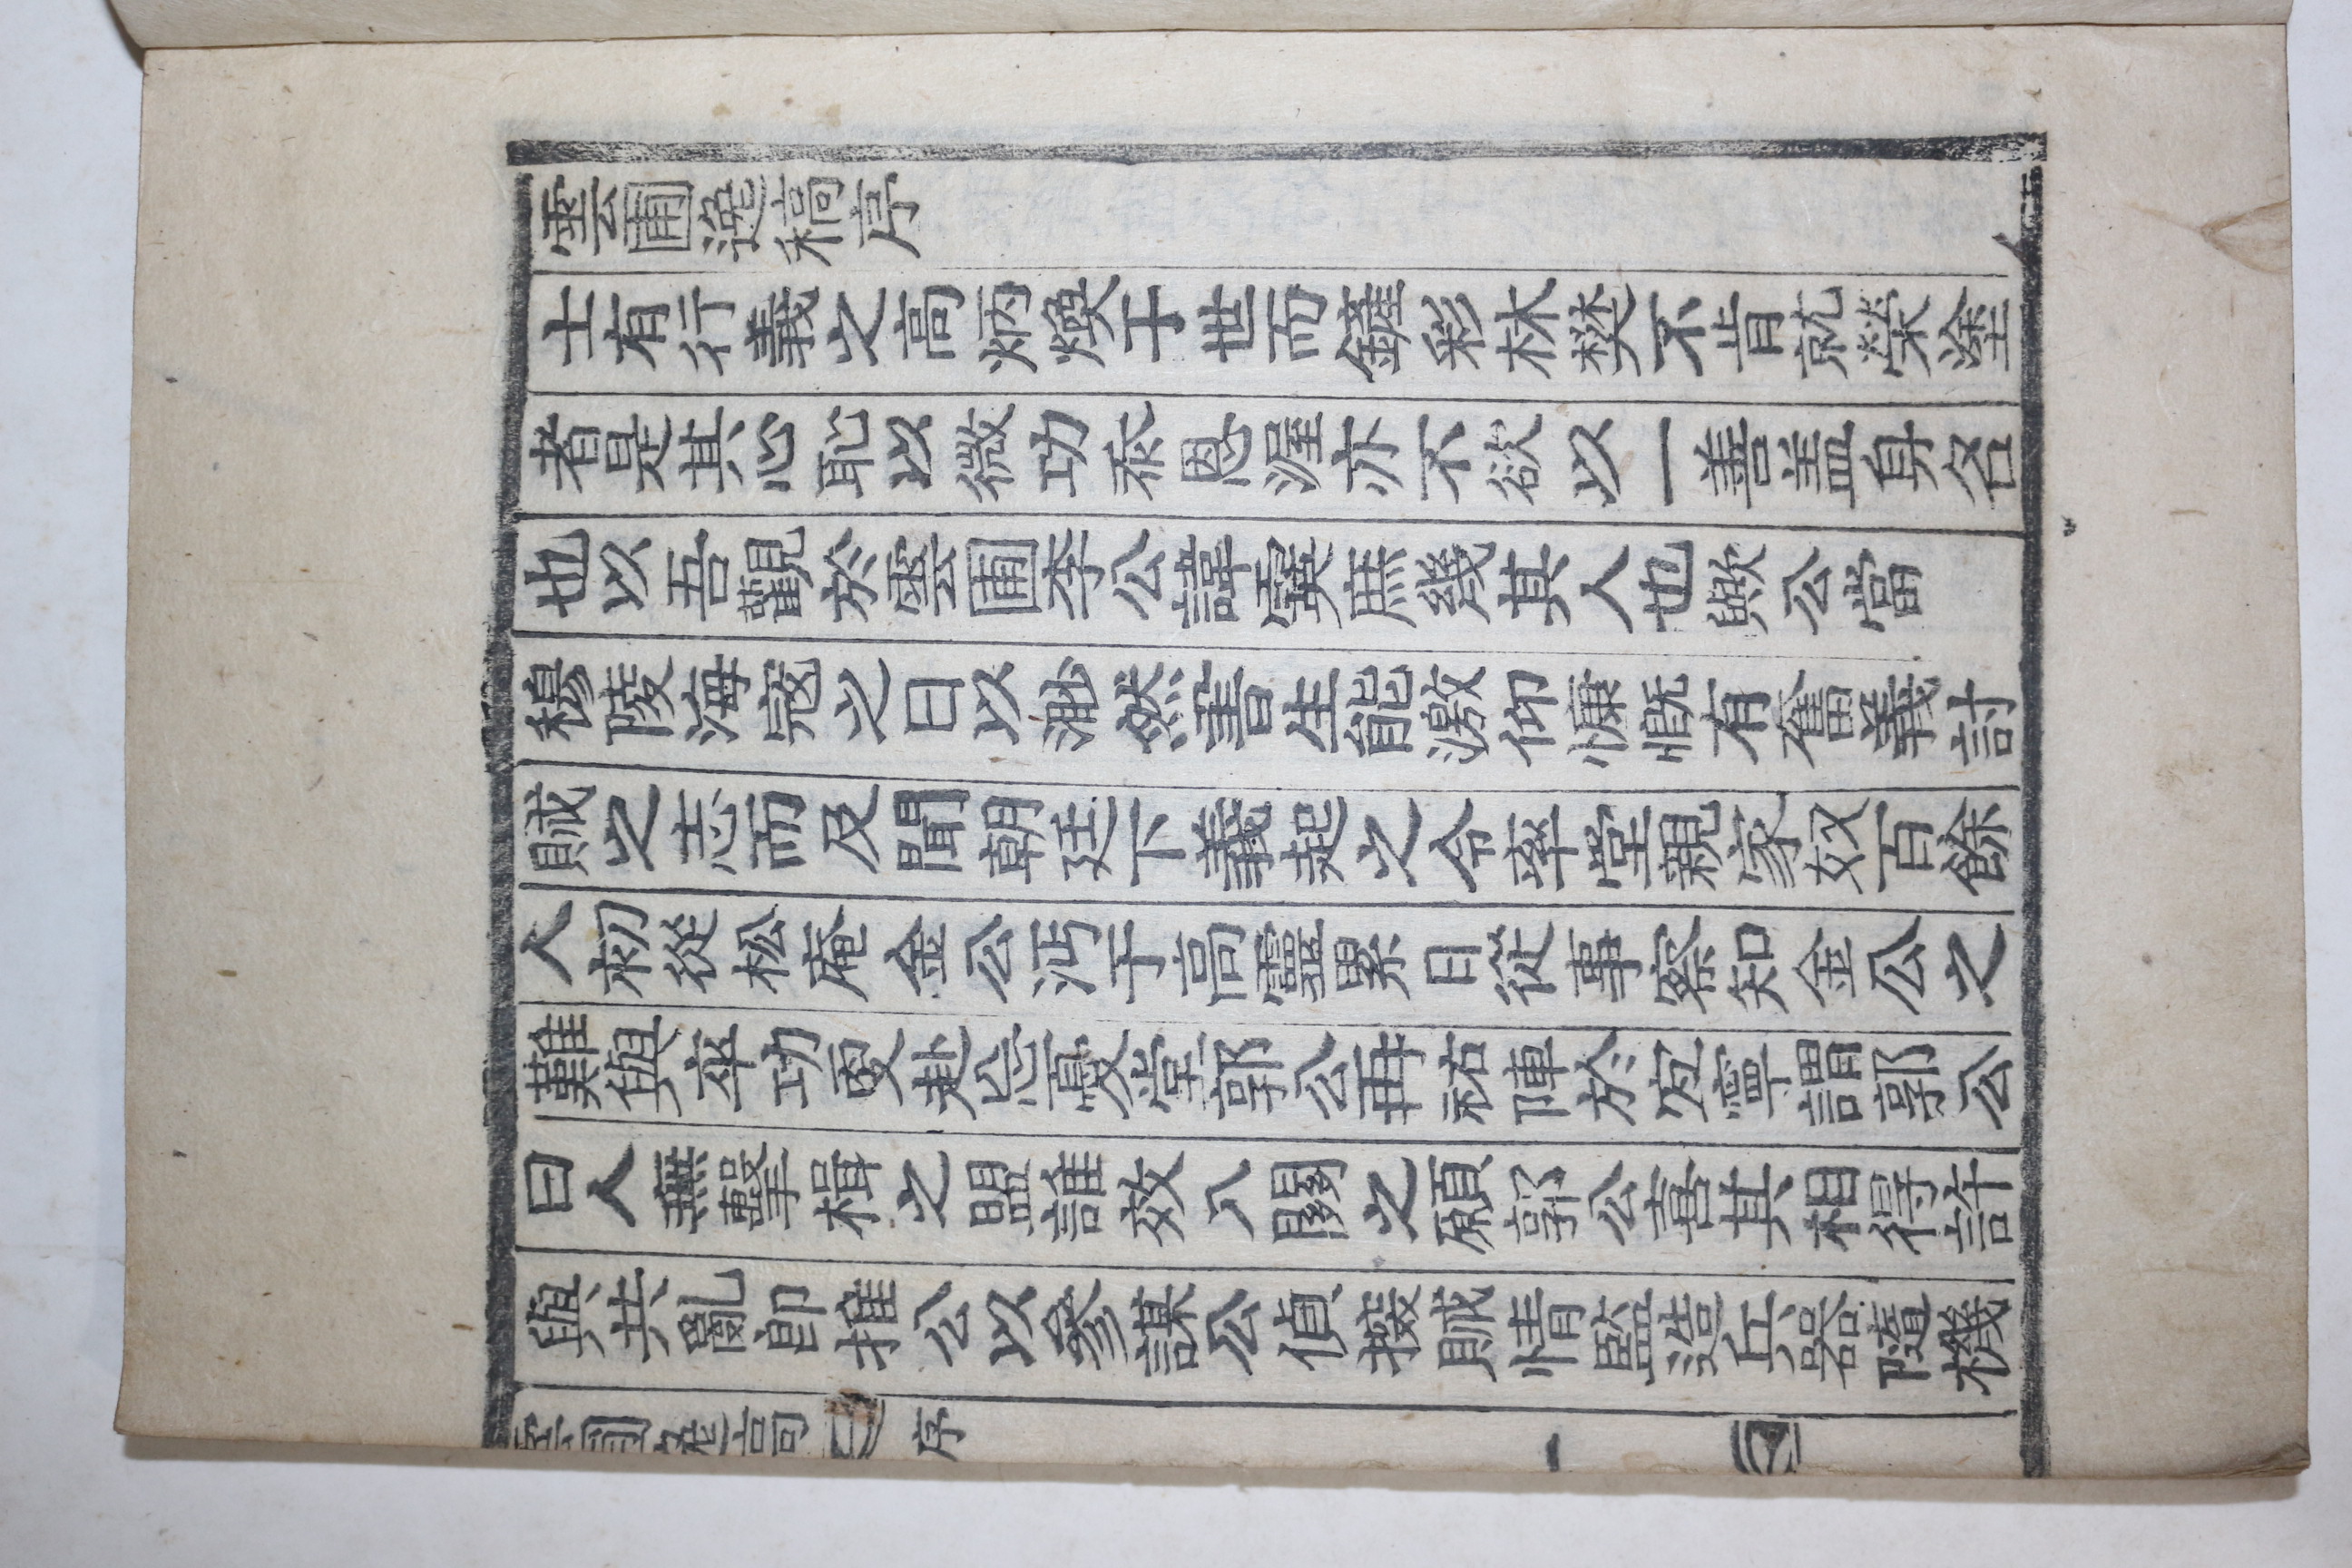 雲圃逸稿序
士有行義之高炳煥于世而鏟彩林樊不肯就榮塗
者是其心恥以微功忝恩渥亦不欲以一善盖身名
也以吾觀於雲圃李公諱霬庶幾其人也歟公當
穆陵海寇之日以沖然書生能激仰慷慨有奮義討
賊之志而及聞朝廷下義起之令率堂親家奴百餘
人初從松庵金公沔于高靈累日從事察知金公之
難與卒功更赴忘憂堂郭公再祐陣於宜寧謂郭公
曰人無擊楫之盟誰效入關之願郭公喜其相得許
與共亂卽推公以參謀公偵探賊情監造兵器隨機
雲圃逸稿 序 一